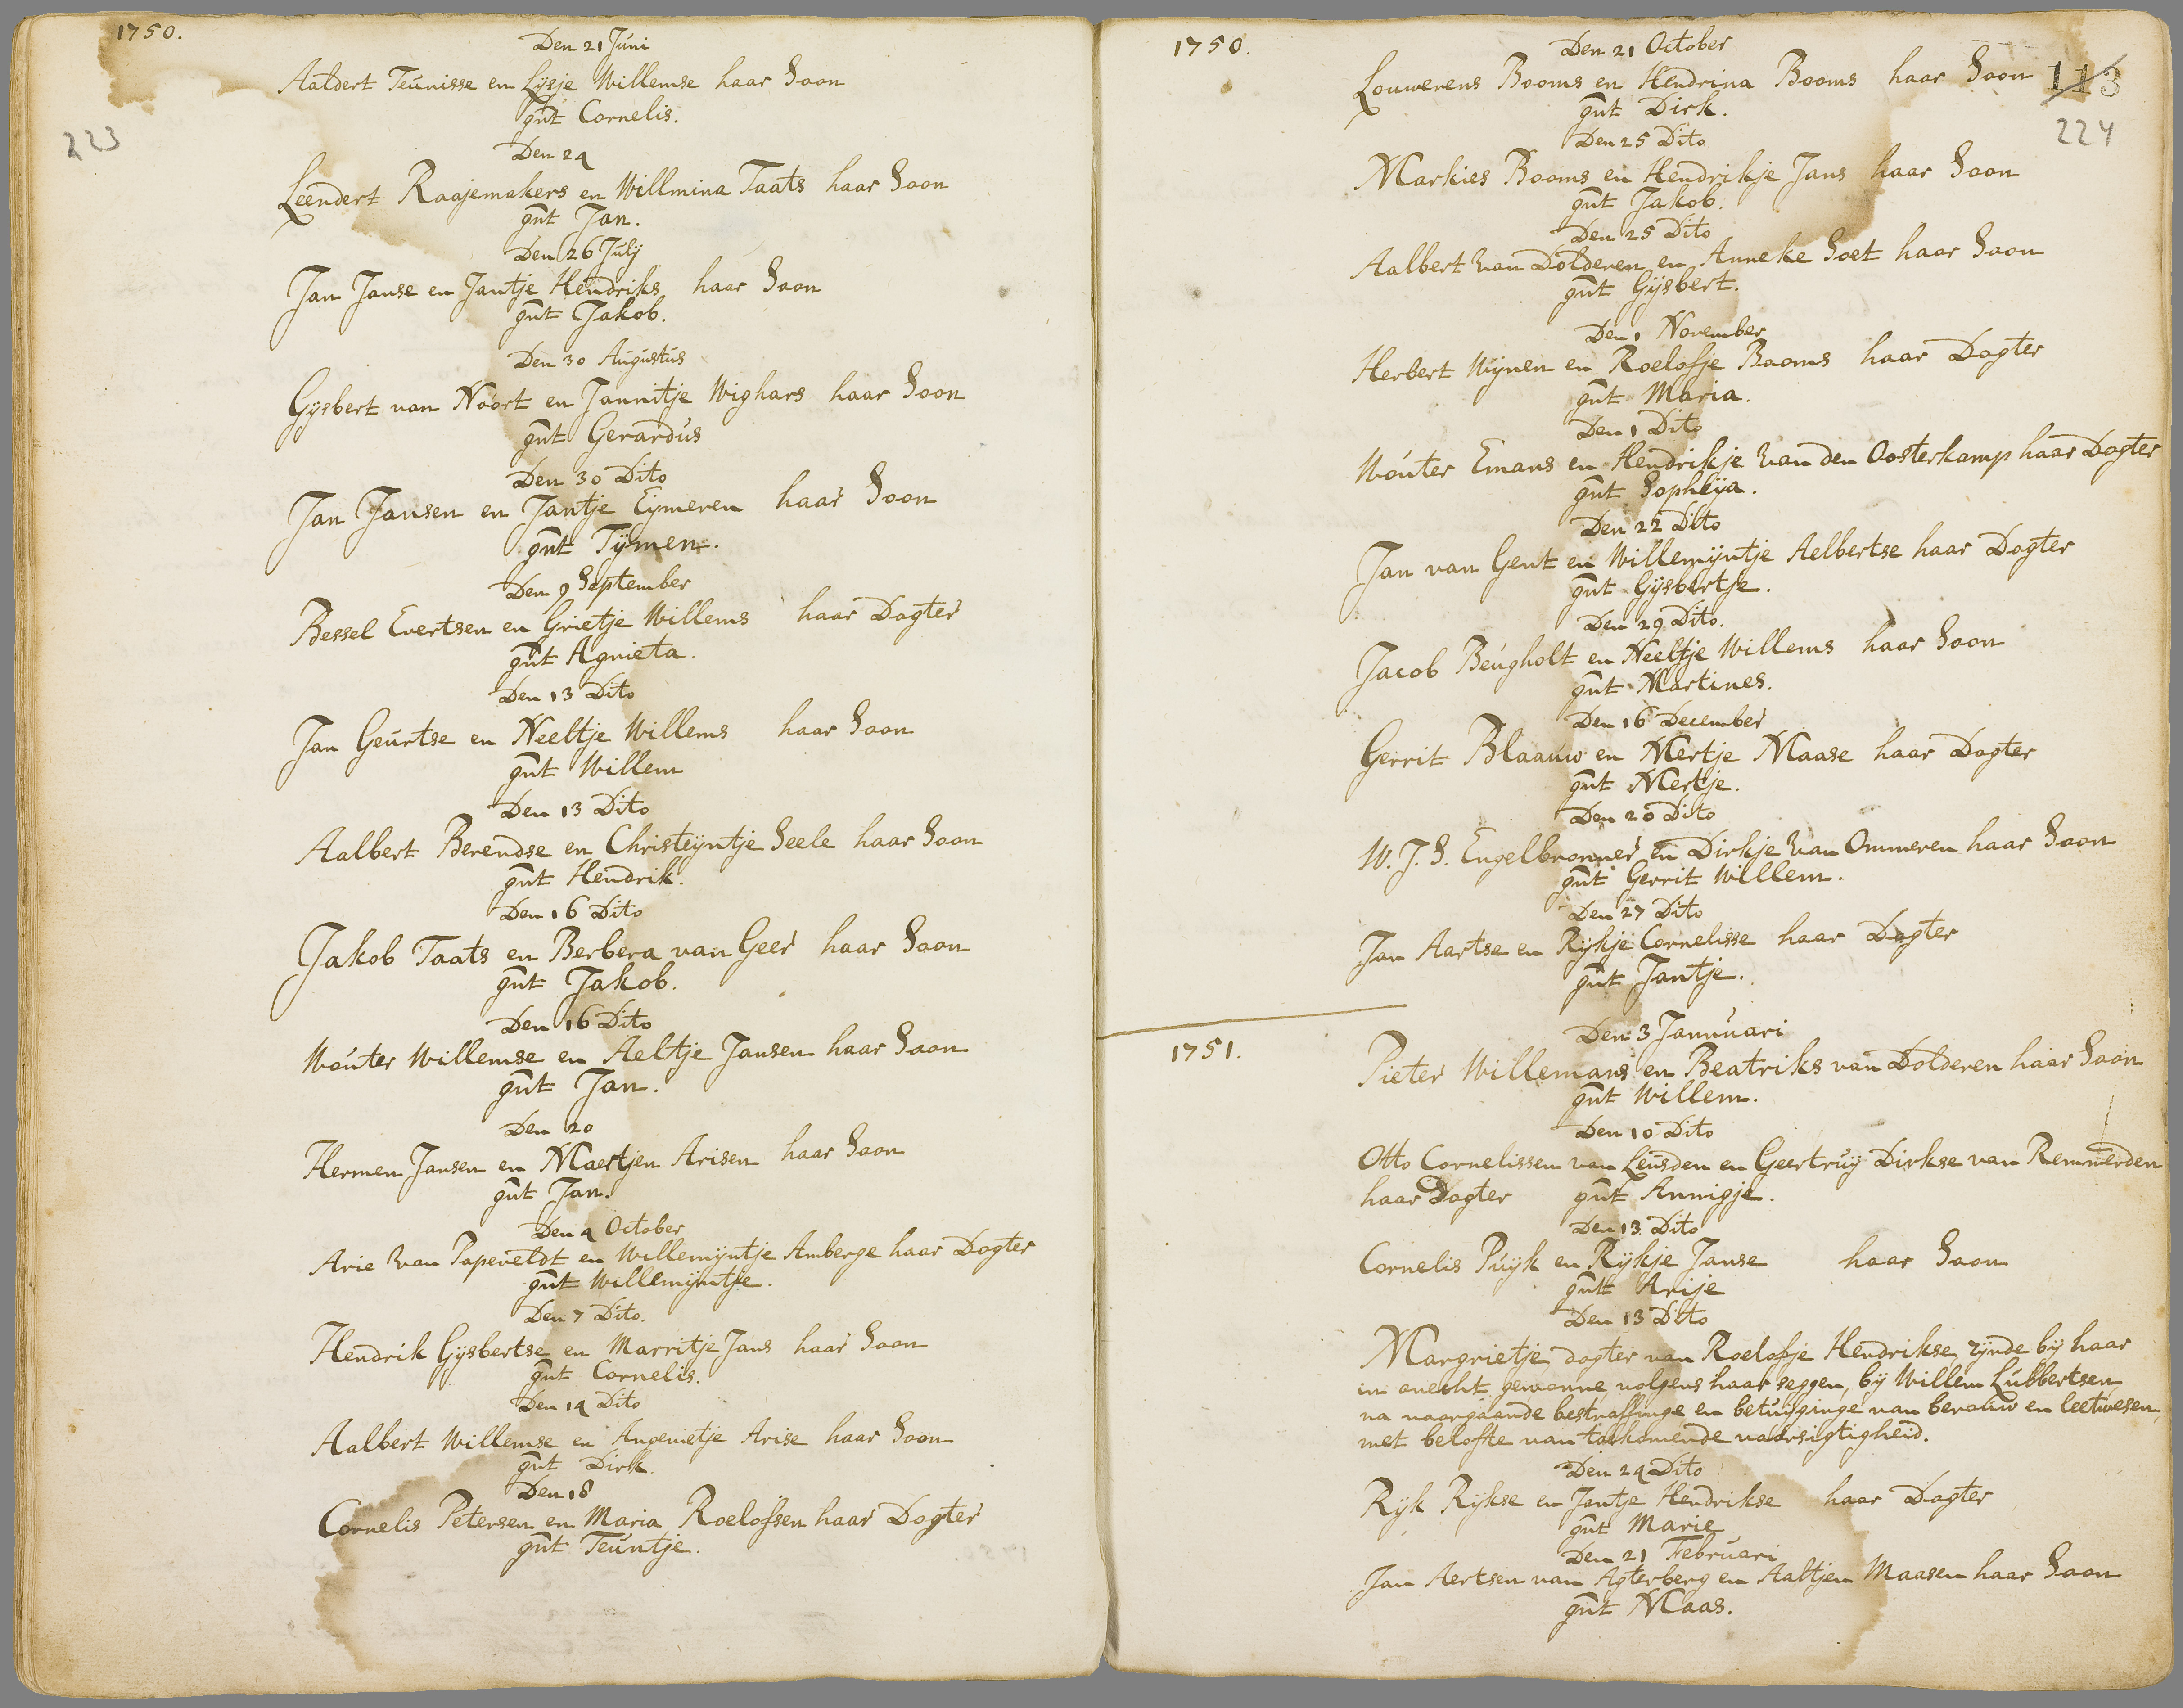 1750.
Den 21 Juni
Aaldert Teunisse en Lysje Willemse haar Soon
gnt Cornelis.
223
Den 24
Leendert Raajemakers en Willmina Taats haar Soon
gnt Jan.
Den 26 July
Jan Janse en Jantje Hendriks haar Soon
gnt Jakob.
Den 30 Augustus
Gysbert van Noort en Jannitje Wighars haar Soon
gnt Gerardus
Den 30 Dito
Jan Jansen en Jantje Eymeren haar Soon
gnt Tymen.
Den 9 September
Bessel Evertsen en Grietje Willems haar Dogter
gnt Agnieta.
Den 13 Dito
Jan Geurtse en Neeltje Willems haar Soon
gnt Willem
Den 13 Dito
Aalbert Berendse en Christeyntje Seele haar Soon
gnt Hendrik.
Den 16 Dito
Jakob Taats en Berbera van Geer haar Soon
gnt Jakob.
Den 16 Dito
Wouter Willemse en Aeltje Jansen haar Soon
gnt Jan.
Den 20
Hermen Jansen en Maertjen Arisen haar Soon
gnt Jan.
Den 4 October
Arie van Papeveldt en Willemyntje Amberge haar Dogter
gnt Willemyntje.
Den 7 Dito.
Hendrik Gysbertse en Marritje Jans haar Soon
gnt Cornelis.
Den 14 Dito
Aalbert Willemse en Angenietje Arise haar Soon
gnt Dirk.
Den 18
Cornelis Petersen en Maria Roelofsen haar Dogter
gnt Teuntje.
1750.
Den 21 October
Louwerens Booms en Hendrina Booms haar Soon
113
gnt Dirk.
224
Den 25 Dito
Markies Booms en Hendrikje Jans haar Soon
gnt Jakob.
Den 25 Dito
Aalbert van Dolderen en Anneke Soet haar Soon
gnt Gysbert.
Den 1 November
Herbert Wynen en Roelofje Booms haar Dogter
gnt Maria.
Den 1 Dito
Wouter Emans en Hendrikje van den Oosterkamp haar Dogter
gnt Sophya.
Den 22 Dito
Jan van Gent en Willemyntje Aelbertse haar Dogter
gnt Gysbertje.
Den 29 Dito.
Jacob Beugholt en Neeltje Willems haar Soon
gnt Martines.
Den 16 December
Gerrit Blaauw en Mertje Maase haar Dogter
gnt Mertje.
Den 20 Dito
W. J. S. Engelbronner en Dirkje van Ommeren haar Soon
gnt Gerrit Willem.
Den 27 Dito
Jan Aartse en Rykje Cornelisse haar Dogter
gnt Jantje.
1751.
Den 3 Januuari
Pieter Willemans en Beatriks van Dolderen haar Soon
gnt Willem.
Den 10 Dito
Otto Cornelissen van Leusden en Geertruy Dirkse van Remmerden
haar Dogter gnt Annigje.
Den 13 Dito
Cornelis Puyk en Rykje Janse haar Soon
gnt Arije
Den 13 Dito
Margrietje dogter van Roelofje Hendrikse zynde by haar
in onecht gewonne volgens haar seggen, by Willem Lubbertsen
na voorgaande bestraffinge en betuyginge van berouw en leetwesen,
met belofte van toekomende voorsigtigheid.
Den 24 Dito
Ryk Rykse en Jantje Hendrikse haar Dogter
gnt Marie
Den 21 Februari
Jan Aertsen van Agterberg en Aaltjen Maasen haar Soon
gnt Maas.